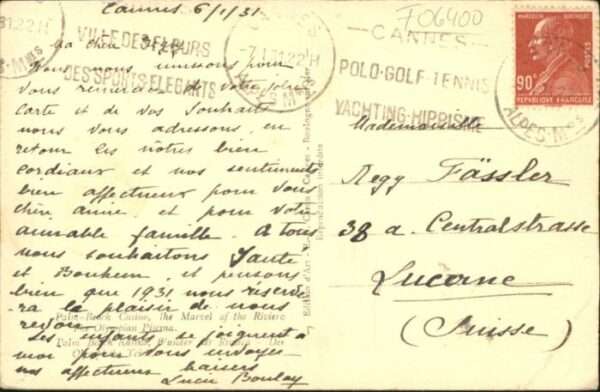 Cannes 6/1/31
Ma chère
Nous nous unissons pour
vous remercier de votre jolie
carte et de vos souhaits
nous vous adressons, en
retour les nôtres bien
cordiaux et nos sentiments
bien affectueux pour vous
chère amie, et pour votre
aimable famille. A tous
nous souhaitons Santé
et Bonheur, et pensons
bien que 1931 nous réserve-
ra le plaisir de nous
revoir
Les enfants se joignent à
moi pour vous envoyer
nos affectueux baisers
Lucie Boulay
VILLE DES FLEURS
DES SPORTS ELEGANTS
7.1.31.22H
ALPES-Mmes
F06400
CANNES
POLO-GOLF-TENNIS
YACHTING-HIPPISME
ALPES-Mmes
90c
POSTES
REPUBLIQUE FRANÇAISE
Mademoiselle
Negy Fässler
38 a. Centralstrasse
Lucerne
(Suisse)
Palm Beach Casino, the Marvel of the Riviera
Olympian Piscina